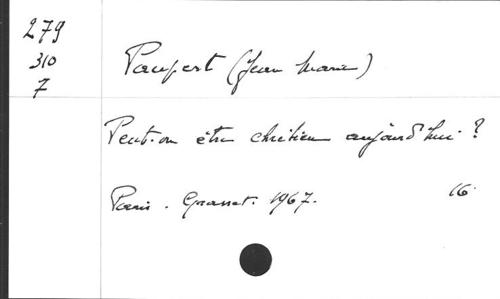 279
310
7
Paupert (Jean Marie)
Peut-on être chrétien aujourd'hui ?
Paris. Grasset. 1967. 16